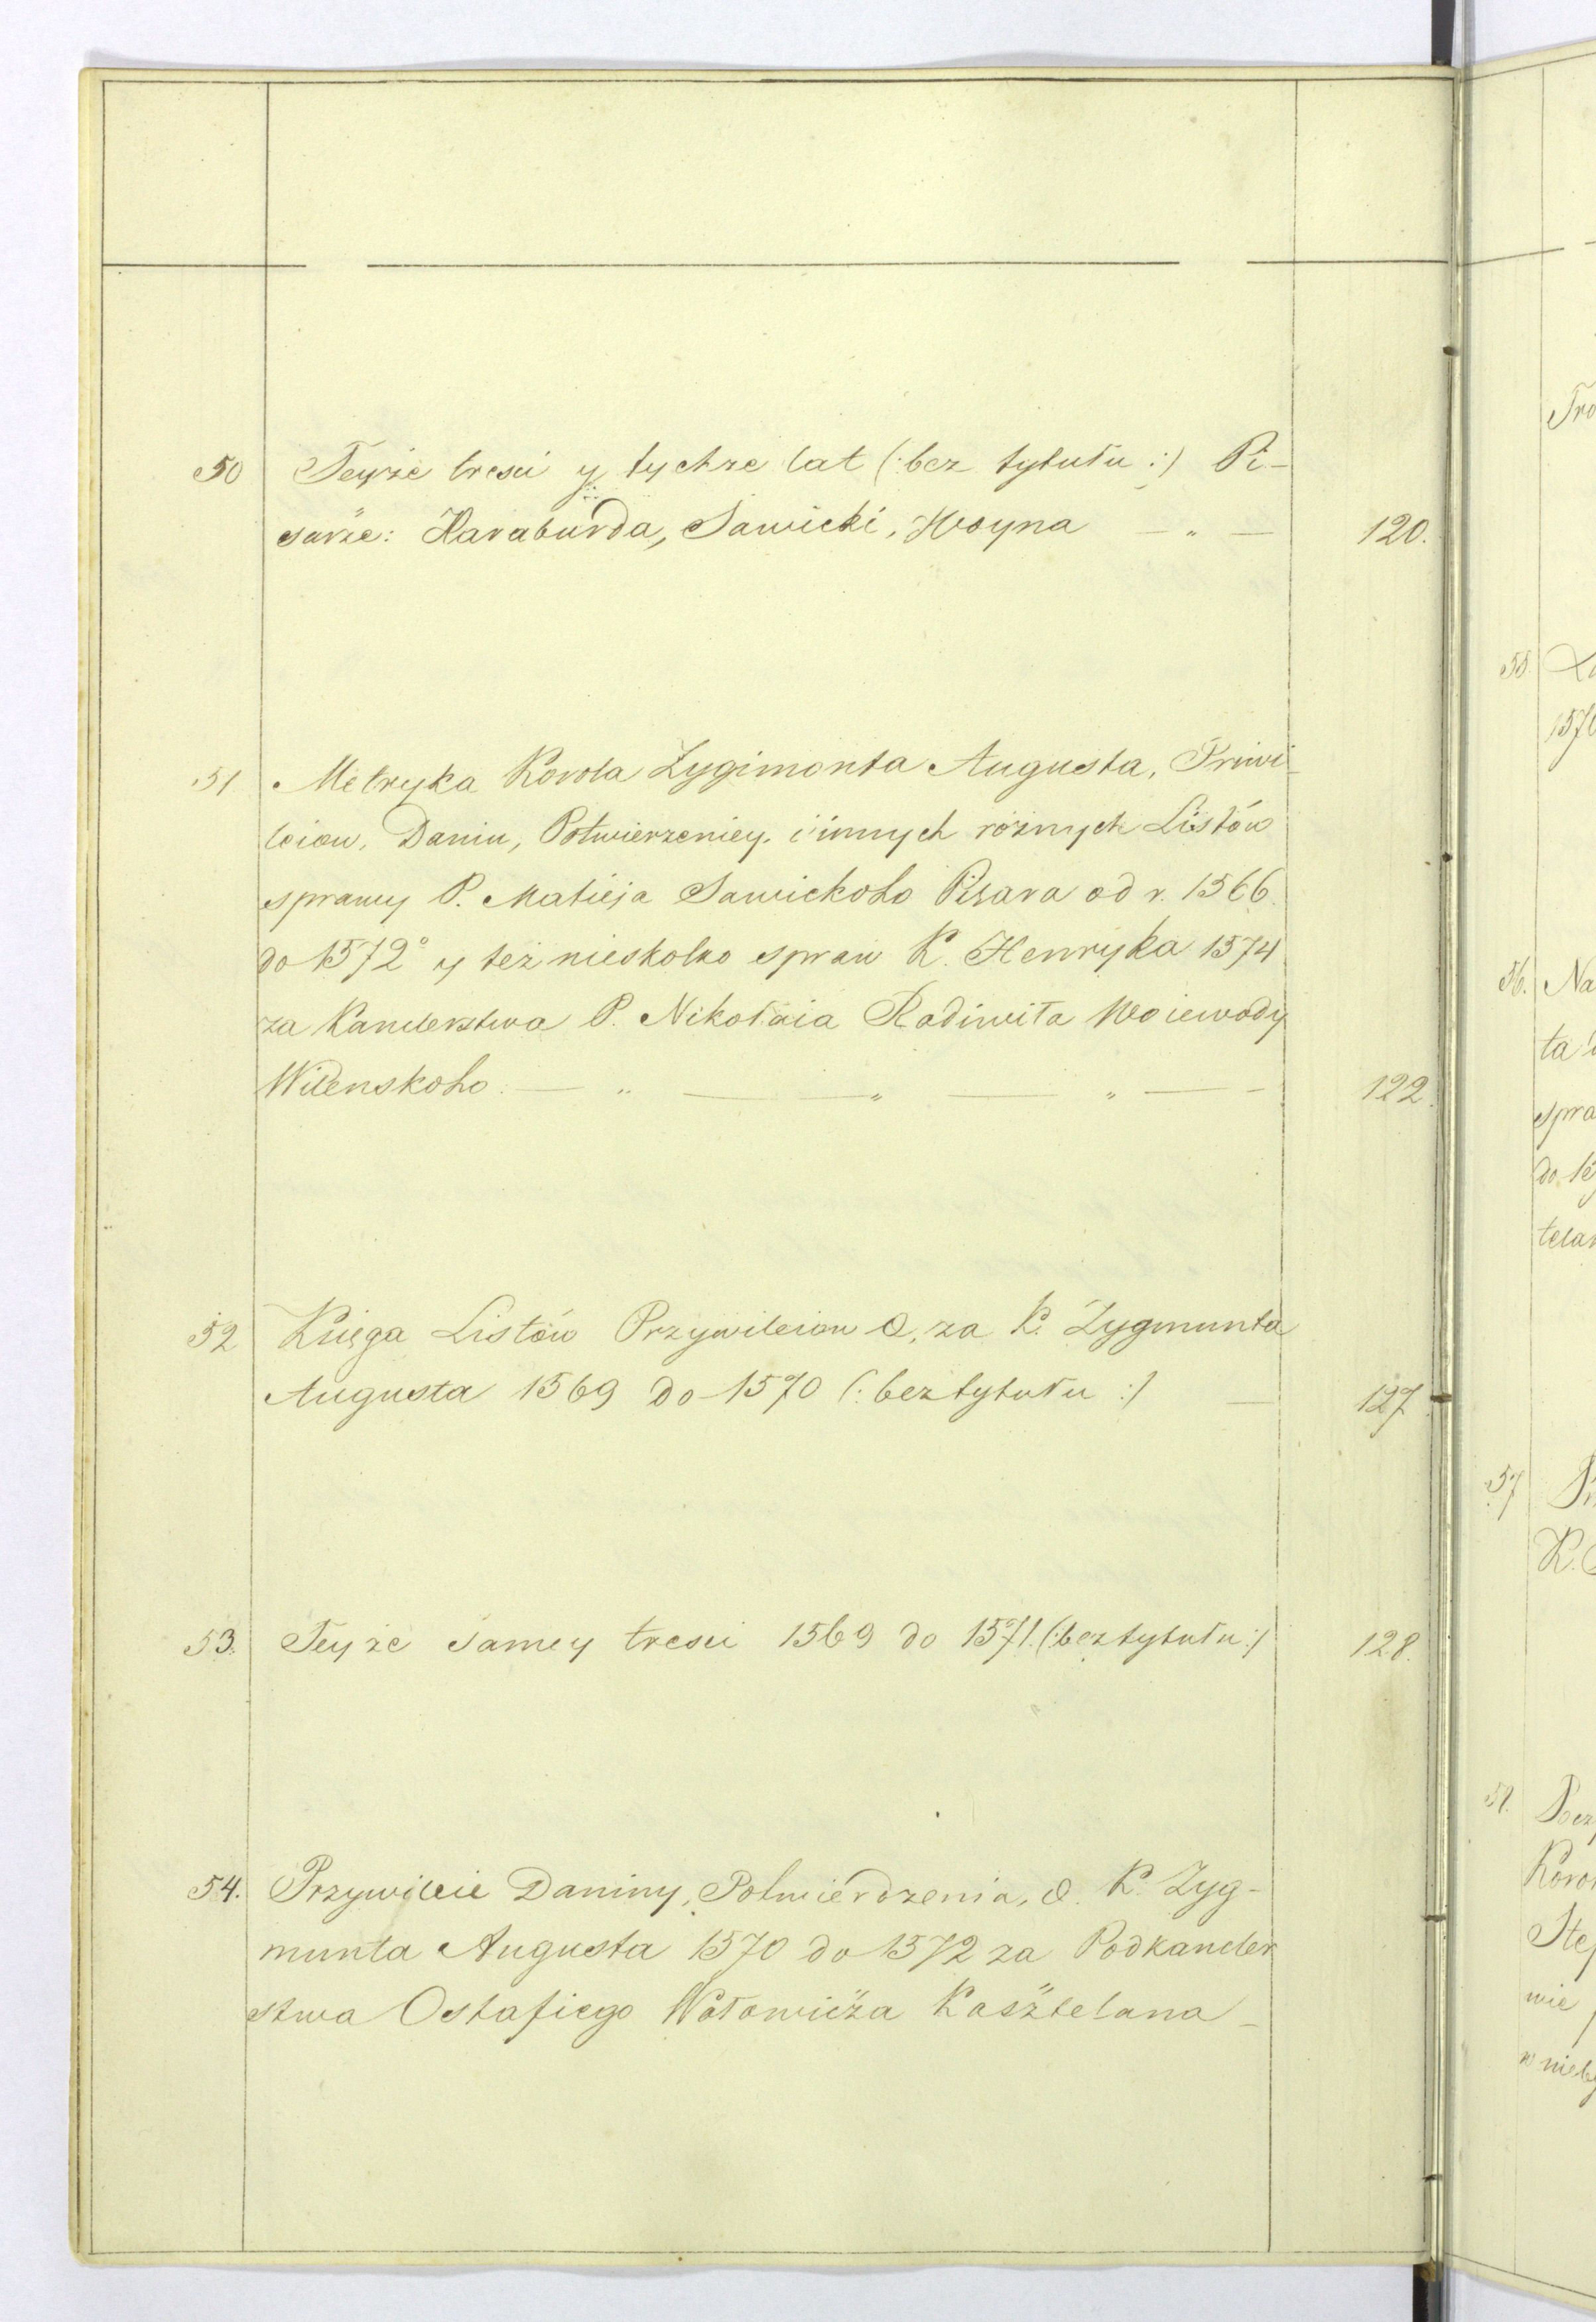 50 Teyże tresci y tychże lat (: bez tytułu :) Pi-
sarze: Haraburda, Sawicki, Woyna — „ — 120.
51 Metryka Korola Zygimonta Augusta, Priwi-
leiow, Danin, Potwierzeniey. i innych roznych Listów
sprawy P. Matieja Sawickoho Pisara od r. 1566.
do 1572° y też nieskolko spraw K. Henryka 1574
za Kanclerstwa P. Nikołaia Radiwiła Woiewody
Wilenskoho — „ — — „ — „ — - 122.
52 Księga Listów Przywileiow &, za K. Zygmunta
Augusta 1569 do 1570 (: bez tytułu :) — 127
53. Teyże samey tresci 1569 do 1571. (: bez tytułu :) 128.
54. Przywileie Daniny, Potwierdzenia, &. K. Zyg-
munta Augusta 1570 do 1572 za Podkancler
stwa Ostafiego Wołowicza Kasztelana -
Tro
55.
157
56. Na
ta
spra
do 15
telan
57
K.
Koro
Step
wie